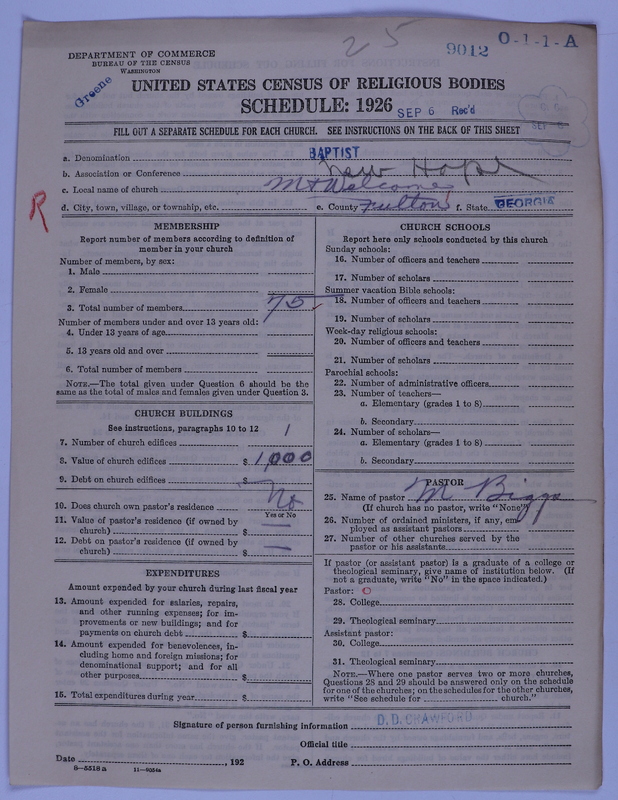 25
9012
O-1-1-A
DEPARTMENT OF COMMERCE
BUREAU OF THE CENSUS
WASHINGTON
Greene
UNITED STATES CENSUS OF RELIGIOUS BODIES
SCHEDULE: 1926
SEP 6 Rec'd
FILL OUT A SEPARATE SCHEDULE FOR EACH CHURCH. SEE INSTRUCTIONS ON THE BACK OF THIS SHEET
a. Denomination BAPTIST
b. Association or Conference New Hope
c. Local name of church Mt Welcome
R
d. City, town, village, or township, etc. e. County Fulton f. State GEORGIA
MEMBERSHIP
Report number of members according to definition of
member in your church
Number of members, by sex:
1. Male
2. Female
3. Total number of members 75
Number of members under and over 13 years old:
4. Under 13 years of age
5. 13 years old and over
6. Total number of members
NOTE.—The total given under Question 6 should be the
same as the total of males and females given under Question 3.
CHURCH BUILDINGS
See instructions, paragraphs 10 to 12
7. Number of church edifices 1
8. Value of church edifices $ 1,000
9. Debt on church edifices $
10. Does church own pastor's residence No
Yes or No
11. Value of pastor's residence (if owned by
church) $ —
12. Debt on pastor's residence (if owned by
church) $ —
EXPENDITURES
Amount expended by your church during last fiscal year
13. Amount expended for salaries, repairs,
and other running expenses; for im-
provements or new buildings; and for
payments on church debt $
14. Amount expended for benevolences, in-
cluding home and foreign missions; for
denominational support; and for all
other purposes $
15. Total expenditures during year $
CHURCH SCHOOLS
Report here only schools conducted by this church
Sunday schools:
16. Number of officers and teachers
17. Number of scholars
Summer vacation Bible schools:
18. Number of officers and teachers
19. Number of scholars
Week-day religious schools:
20. Number of officers and teachers
21. Number of scholars
Parochial schools:
22. Number of administrative officers
23. Number of teachers—
a. Elementary (grades 1 to 8)
b. Secondary
24. Number of scholars—
a. Elementary (grades 1 to 8)
b. Secondary
PASTOR
25. Name of pastor M Biggs
(If church has no pastor, write "None")
26. Number of ordained ministers, if any, em-
ployed as assistant pastors
27. Number of other churches served by the
pastor or his assistants
If pastor (or assistant pastor) is a graduate of a college or
theological seminary, give name of institution below. (If
not a graduate, write "No" in the space indicated.)
Pastor: O
28. College
29. Theological seminary
Assistant pastor:
30. College
31. Theological seminary
NOTE.—Where one pastor serves two or more churches,
Questions 28 and 29 should be answered only on the schedule
for one of the churches; on the schedules for the other churches,
write "See schedule for church."
Signature of person furnishing information D. D. CRAWFORD
Official title
Date , 192 P. O. Address
8—5518a 11—9054a